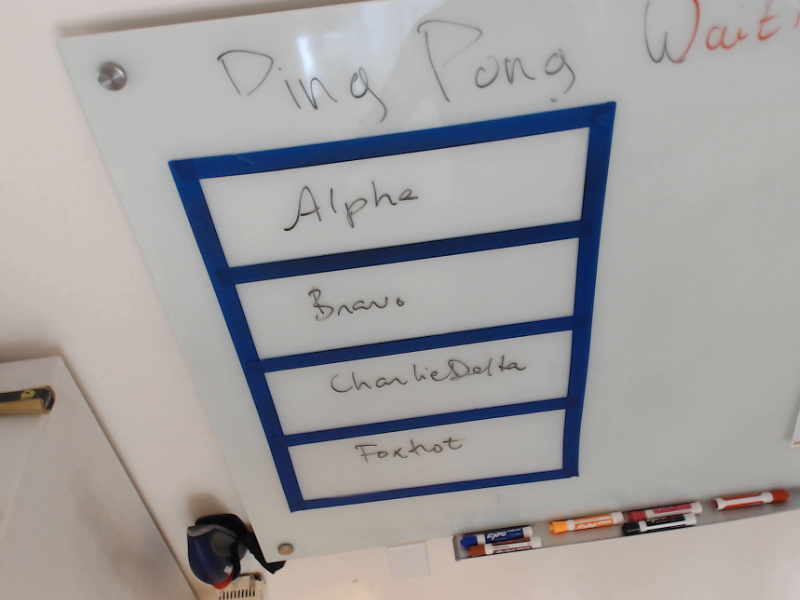 Ding Pong
Wait
Alpha
Bravo
CharlieDelta
Foxtrot
EXPO